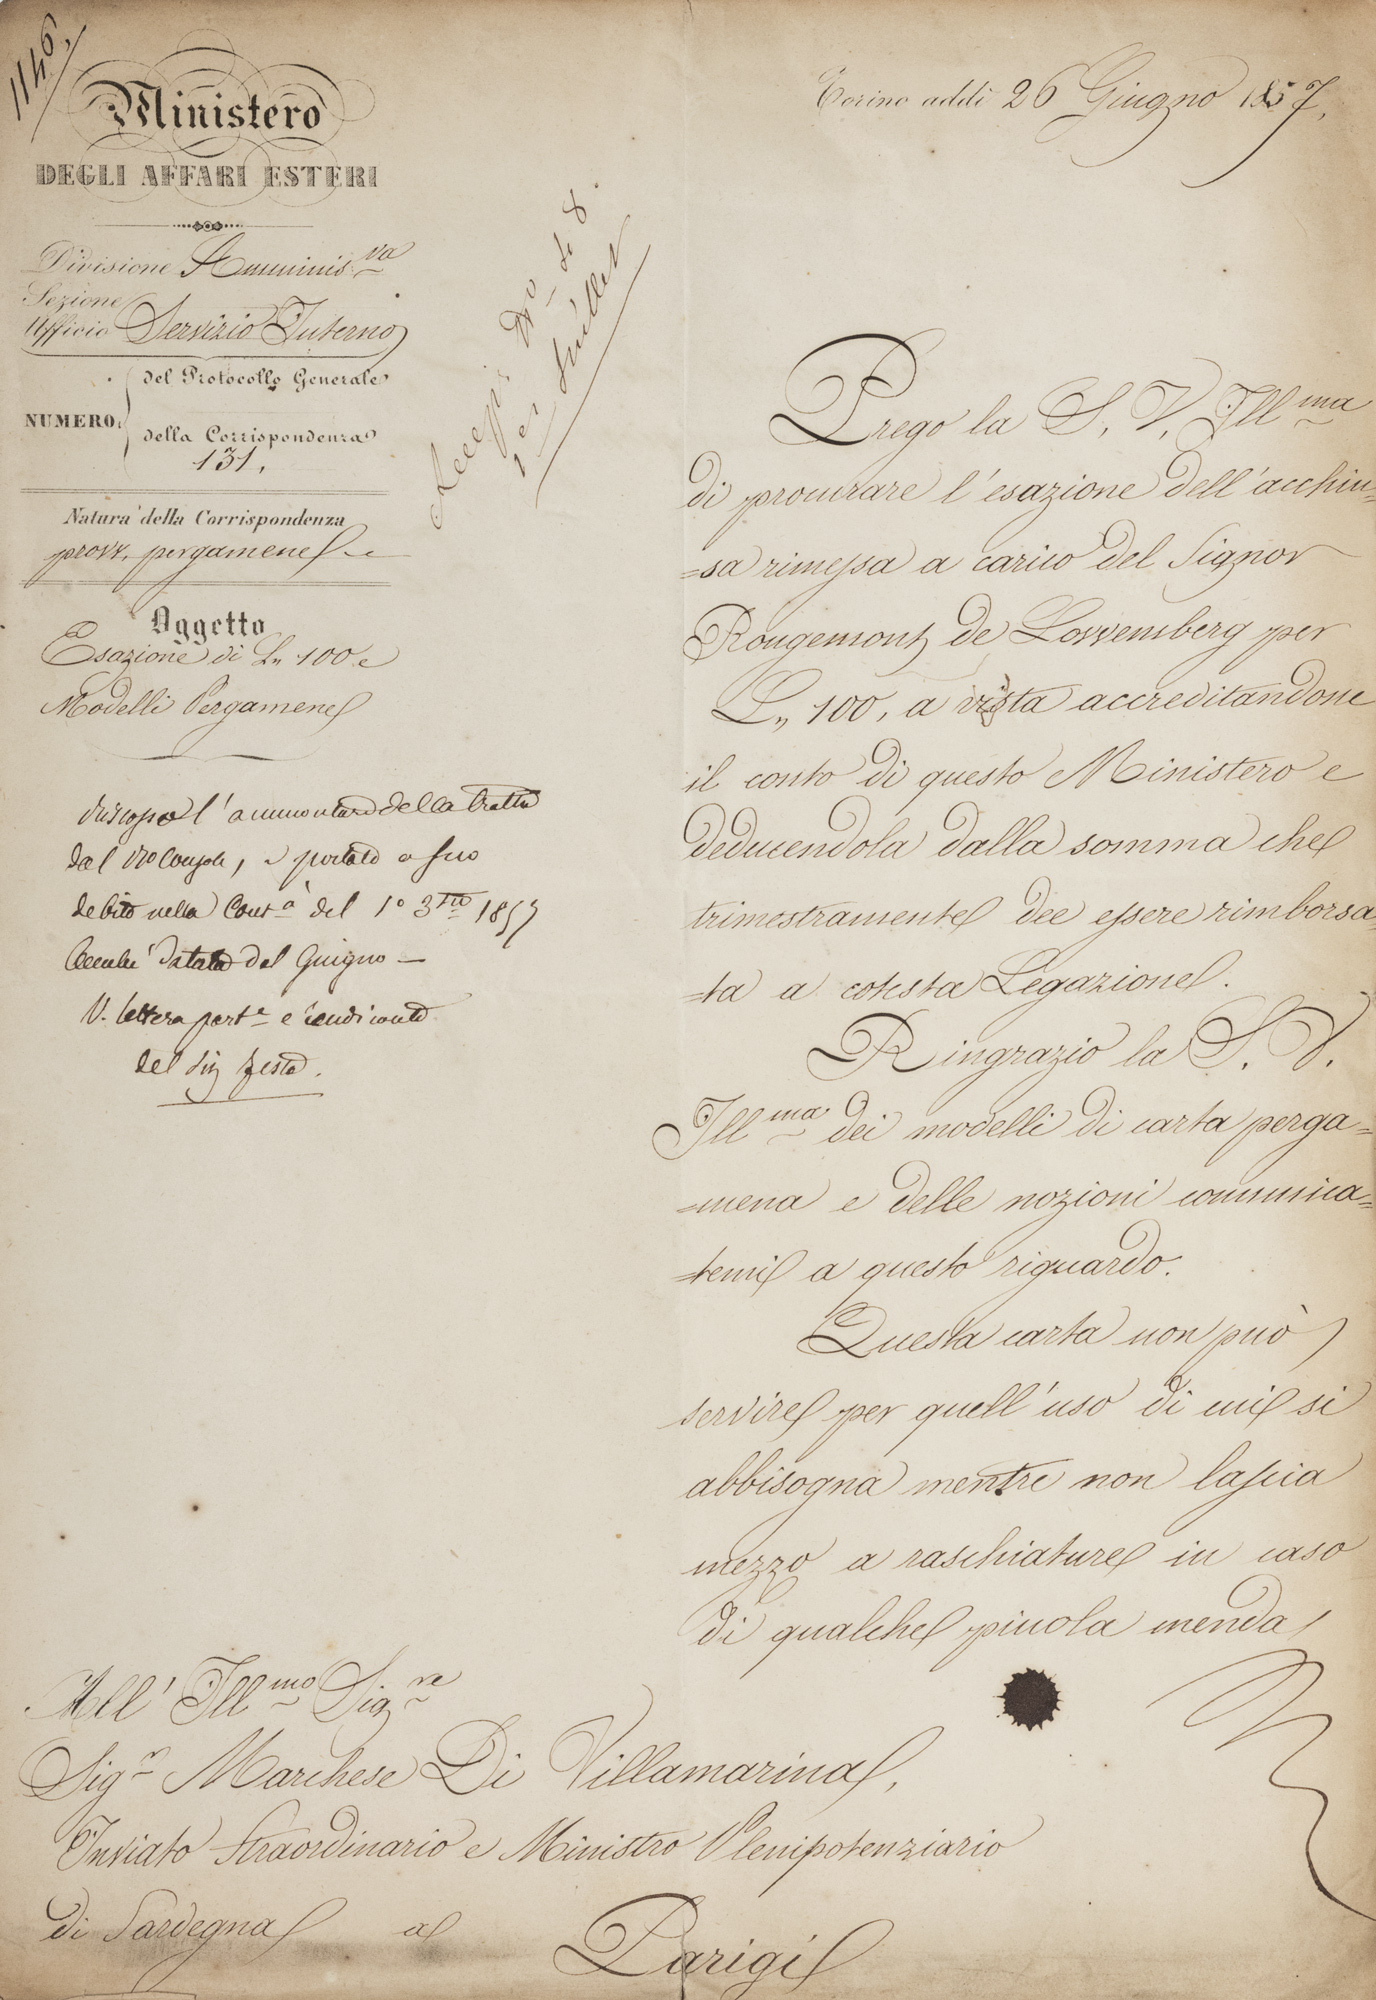 1146.
Ministero
DEGLI AFFARI ESTERI
Divisione Amminis.va
Sezione
Ufficio Servizio Interno
NUMERO
del Protocollo Generale
della Corrispondenza
131.
Natura della Corrispondenza
provv. pergamene
Oggetto
Esazione di Ln 100 e
Modelli Pergamene
l'ammontare della tratta
dal e portato a suo
debito nella del 1º 3tre 1857
datata del Giugno —
V. lettera e
del Sig
Torino addì 26 Giugno 1857.
Prego la S. V. Illma
di procurare l'esazione dell'acchiu=
=sa rimessa a carico del Signor
Rougemont de Lowemberg per
Ln 100, a vista accreditandone
il conto di questo Ministero e
deducendola dalla somma che
trimestramente dee essere rimborsa=
=ta a cotesta Legazione.
Ringrazio la S. V.
Illma dei modelli di carta perga=
=mena e delle nozioni comunica=
=temi a questo riguardo.
Questa carta non può
servire per quell'uso di cui si
abbisogna mentre non lascia
mezzo a raschiature in caso
di qualche piccola menda
All' Illmo Sigre
Sigr Marchese Di Villamarina,
Inviato Straordinario e Ministro Plenipotenziario
di Sardegna a
Parigi